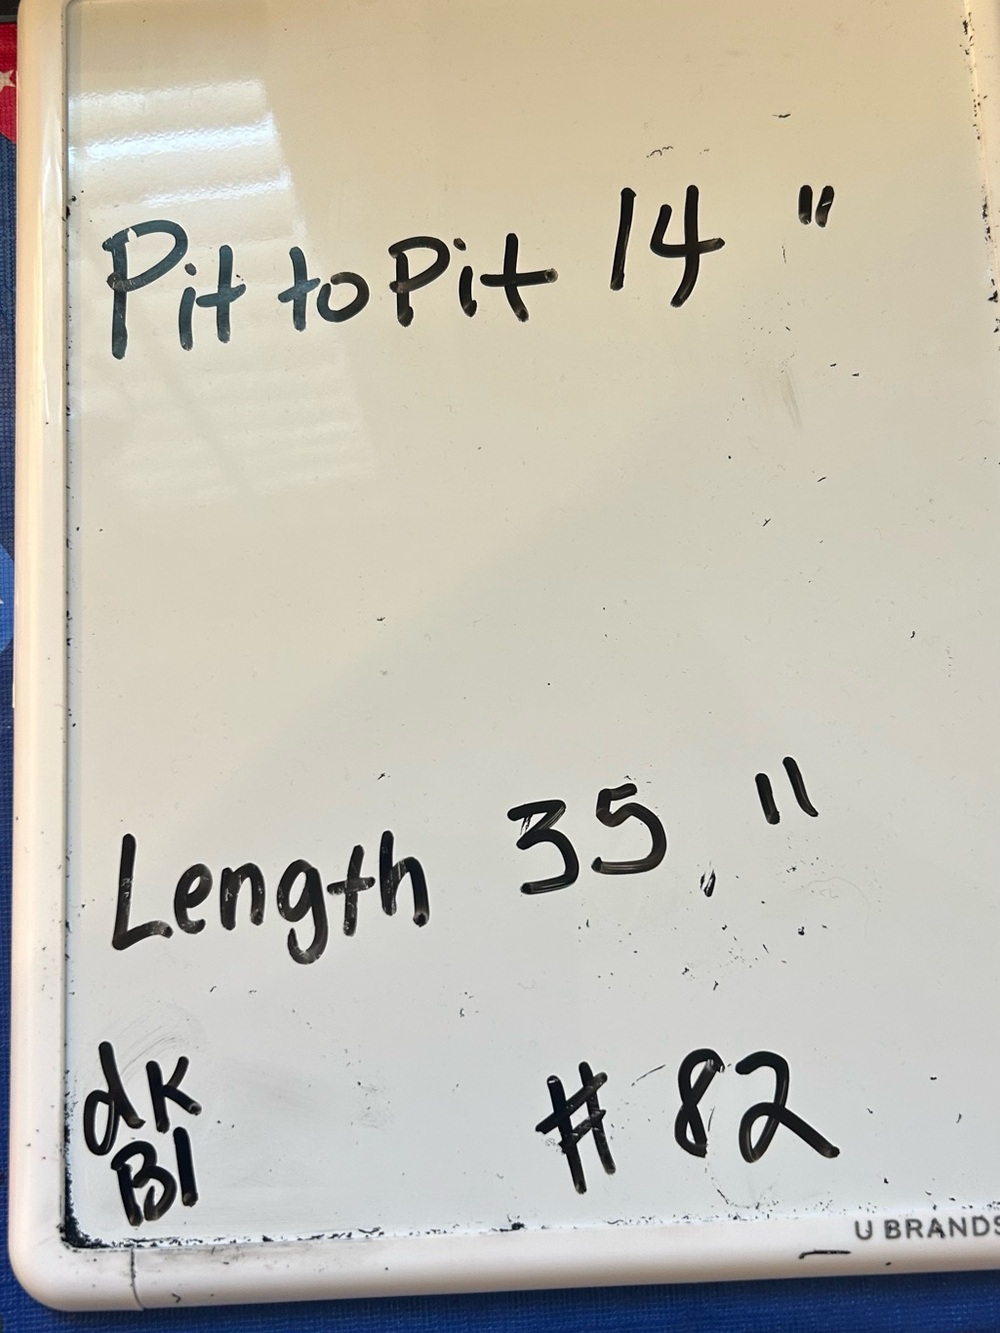 Pit to Pit 14 "
Length 35 "
dk
Bl
# 82
U BRANDS